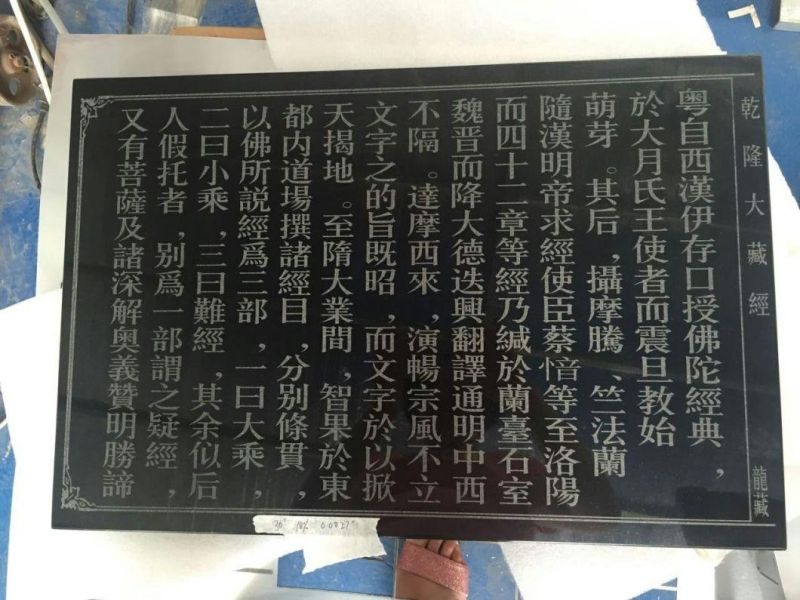 乾隆大藏經
龍藏
粵自西漢伊存口授佛陀經典，
於大月氏王使者而震旦教始
萌芽。其后，攝摩騰、竺法蘭
隨漢明帝求經使臣蔡愔等至洛陽
而四十二章等經乃緘於蘭臺石室
魏晋而降大德迭興翻譯通明中西
不隔。達摩西來，演暢宗風不立
文字之的旨既昭，而文字於以掀
天揭地。至隋大業間，智果於東
都内道場撰諸經目，分别條貫，
以佛所説經爲三部，一曰大乘，
二曰小乘，三曰難經，其余似后
人假托者，别爲一部謂之疑經，
又有菩薩及諸深解奥義贊明勝諦